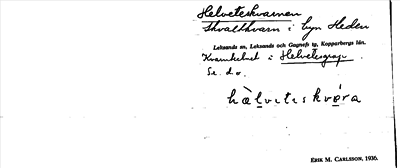 Helveteskvarnen
skvaltkvarn i byn Heden
Leksands sn, Leksands och Gagnefs tg, Kopparbergs län.
Kvarnhelvet i Helvetesgrop.
Se d. o.
hælvitiskvora
ERIK M. CARLSSON, 1930.